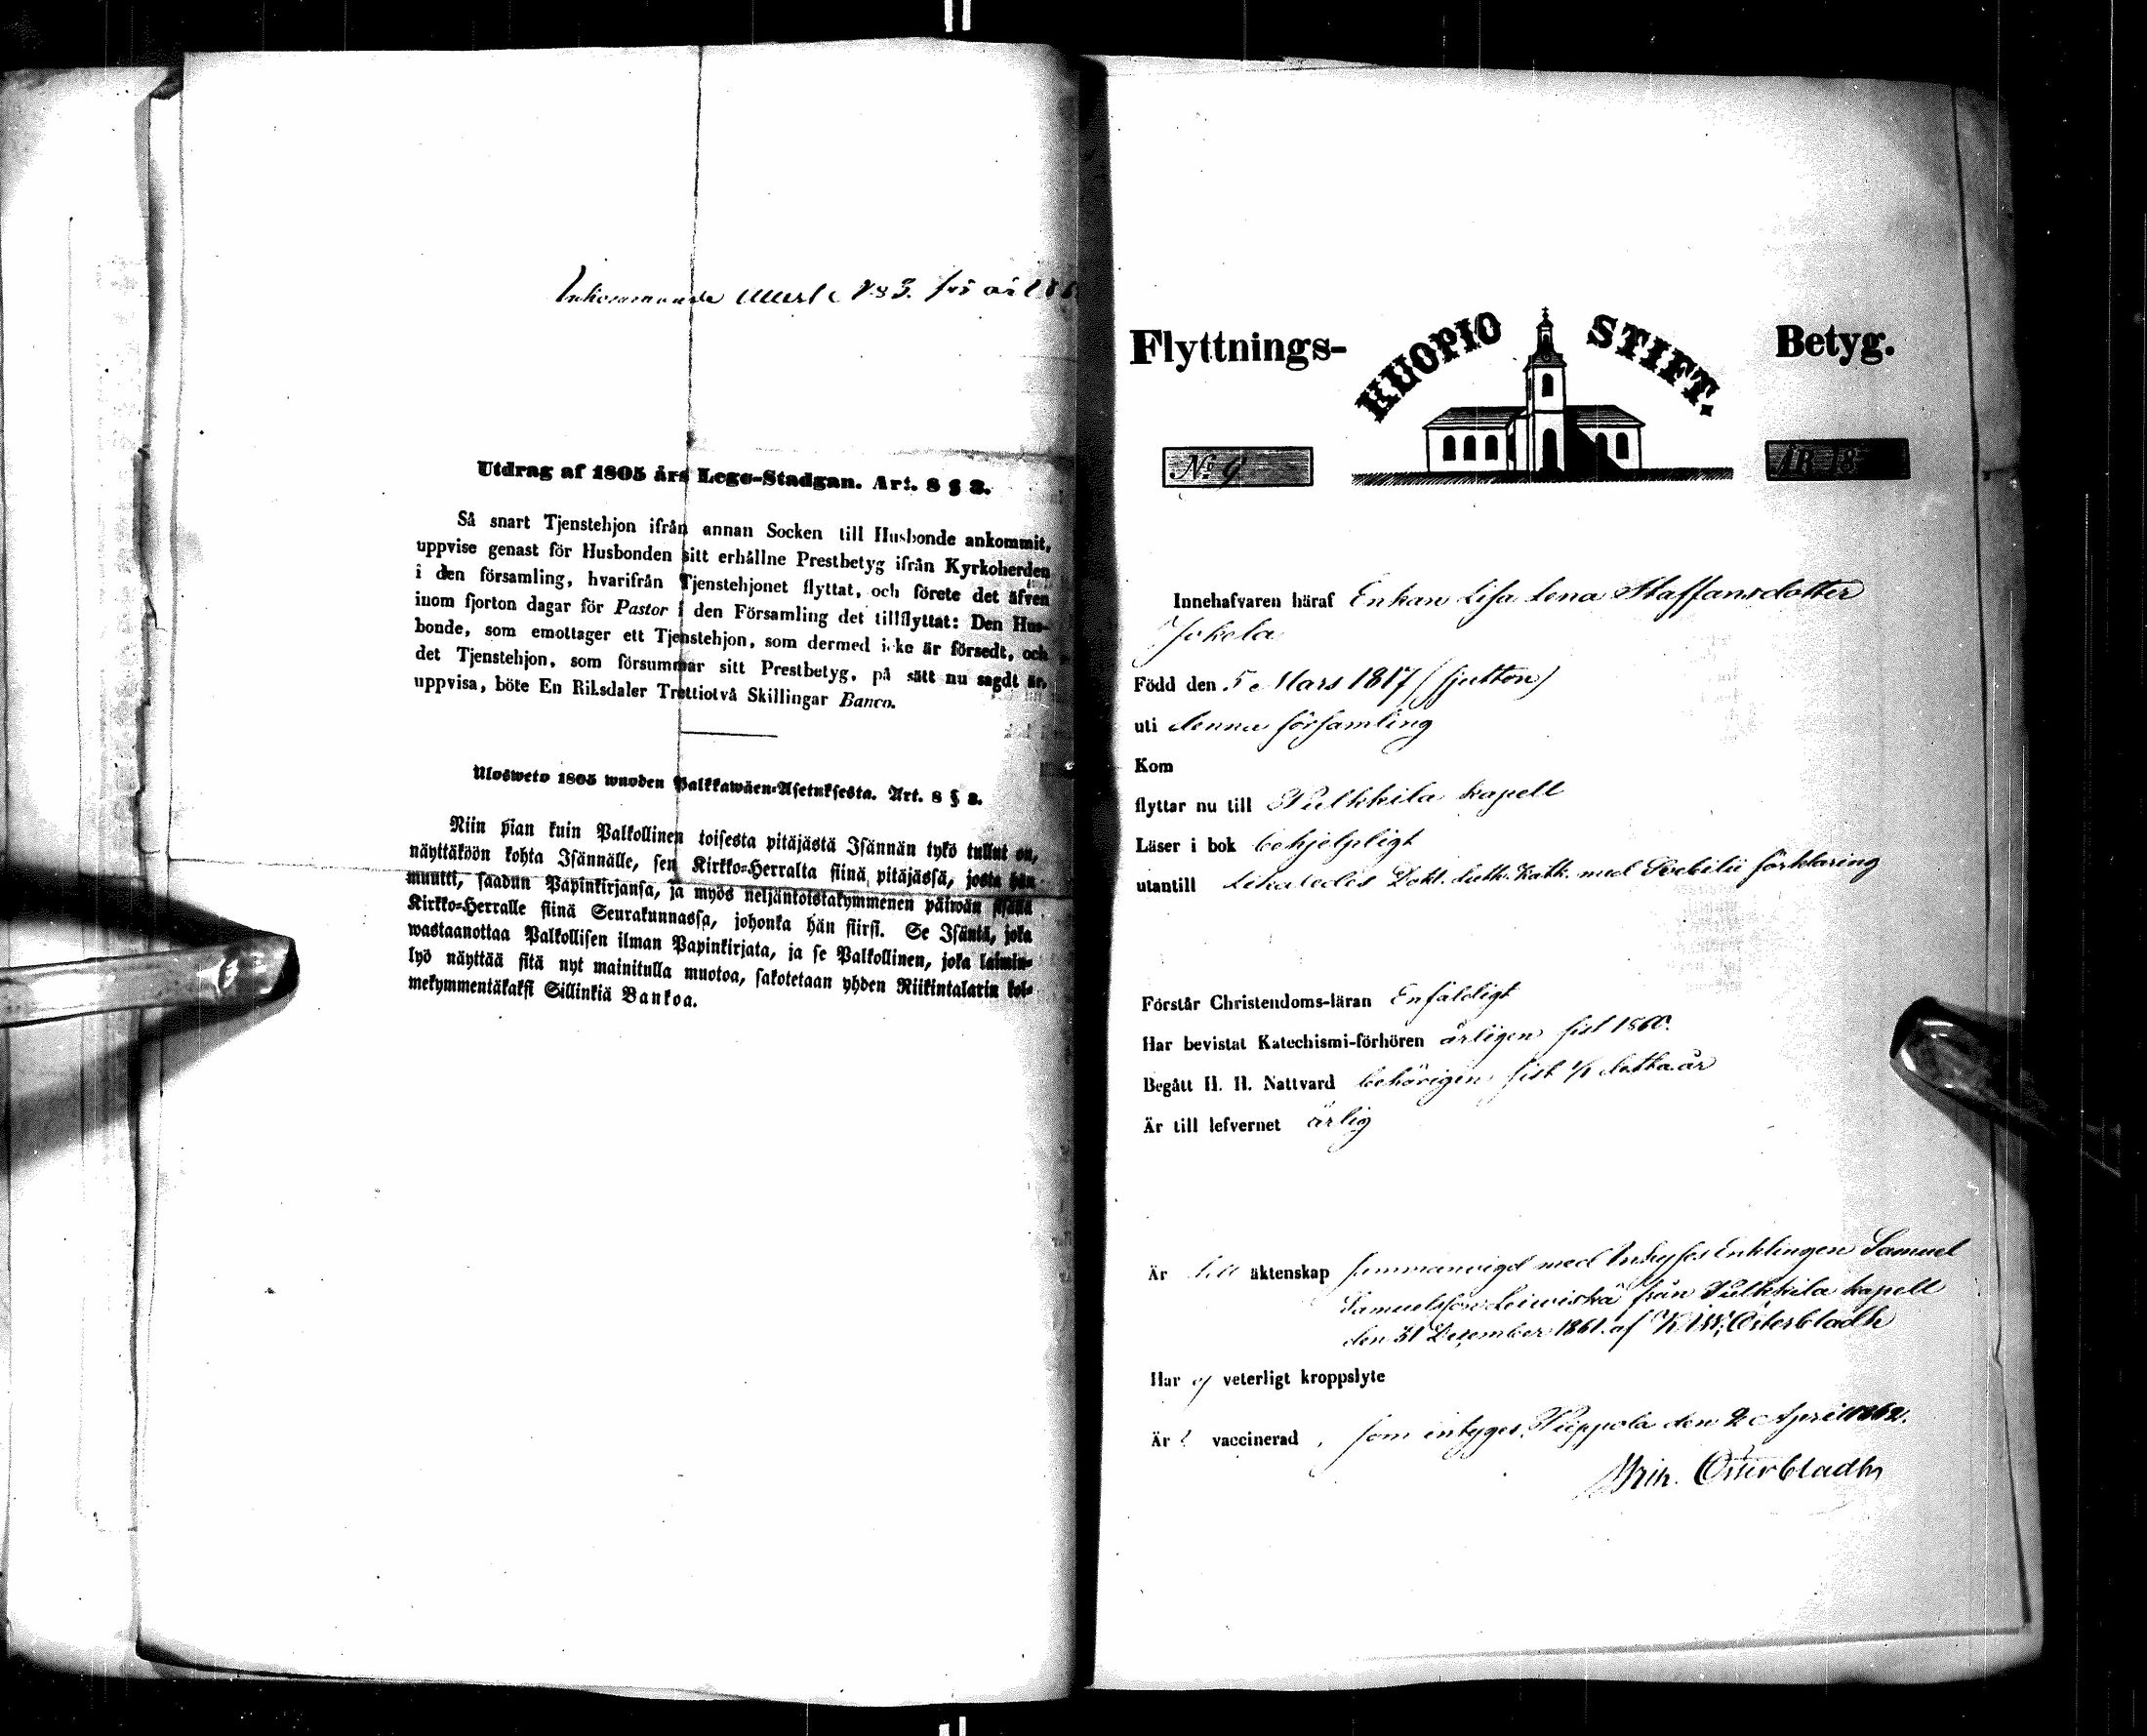 Inkommande attest N:o 3. för år 186
Utdrag af 1805 års Lego-Stadgan. Art. 8 § 3.
Så snart Tjenstehjon ifrån annan Socken till Husbonde ankommit,
uppvise genast för Husbonden sitt erhållne Prestbetyg ifrån Kyrkoherden
i den församling, hvarifrån Tjenstehjonet flyttat, och förete det äfven
inom fjorton dagar för Pastor i den Församling det tillflyttat: Den Hus-
bonde, som emottager ett Tjenstehjon, som dermed icke är försedt, och
det Tjenstehjon, som försummar sitt Prestbetyg, på sätt nu sagdt är,
uppvisa, böte En Riksdaler Trettiotvå Skillingar Banco.
Ulosweto 1805 wuoden Palkkawäen-Asetuksesta. Art. 8 § 3.
Niin pian kuin Palkollinen toisesta pitäjästä Isännän tykö tullut on,
näyttäköön kohta Isännälle, sen Kirkko-Herralta siinä pitäjässä, josta hän
muutti, saadun Papinkirjansa, ja myös neljäntoistakymmenen päiwän sisällä
Kirkko-Herralle siinä Seurakunnassa, johonka hän siirsi. Se Isäntä, joka
wastaanottaa Palkollisen ilman Papinkirjata, ja se Palkollinen, joka laimin-
lyö näyttää sitä nyt mainitulla muotoa, sakotetaan yhden Riikintalarin kol-
mekymmentäkaksi Sillinkiä Bankoa.
Flyttnings- KUOPIO STIFT. Betyg.
No 9 ÅR 18
Innehafvaren häraf Enkan Lisa Lena Staffansdotter
Jokela
Född den 5 Mars 1817 (sjutton)
uti denna församling
Kom
flyttar nu till Pulkkila kapell
Läser i bok behjelpligt
utantill likaledes Dokt. Luth. Kath. med Svebilii förklaring
Förstår Christendoms-läran Enfaldigt
Har bevistat Katechismi-förhören årligen sist 1860.
Begått H. H. Nattvard behörigen sist 1/1 detta år
Är till lefvernet ärlig
Är till äktenskap sammanvigd med Inhyses Enklingen Samuel
Samuelsson Leiwiskä från Pulkkila kapell
den 31 December 1861. af Österbladh
Har ej veterligt kroppslyte
Är vaccinerad, som intygas. Piippola den 2 April 1862.
Österbladh